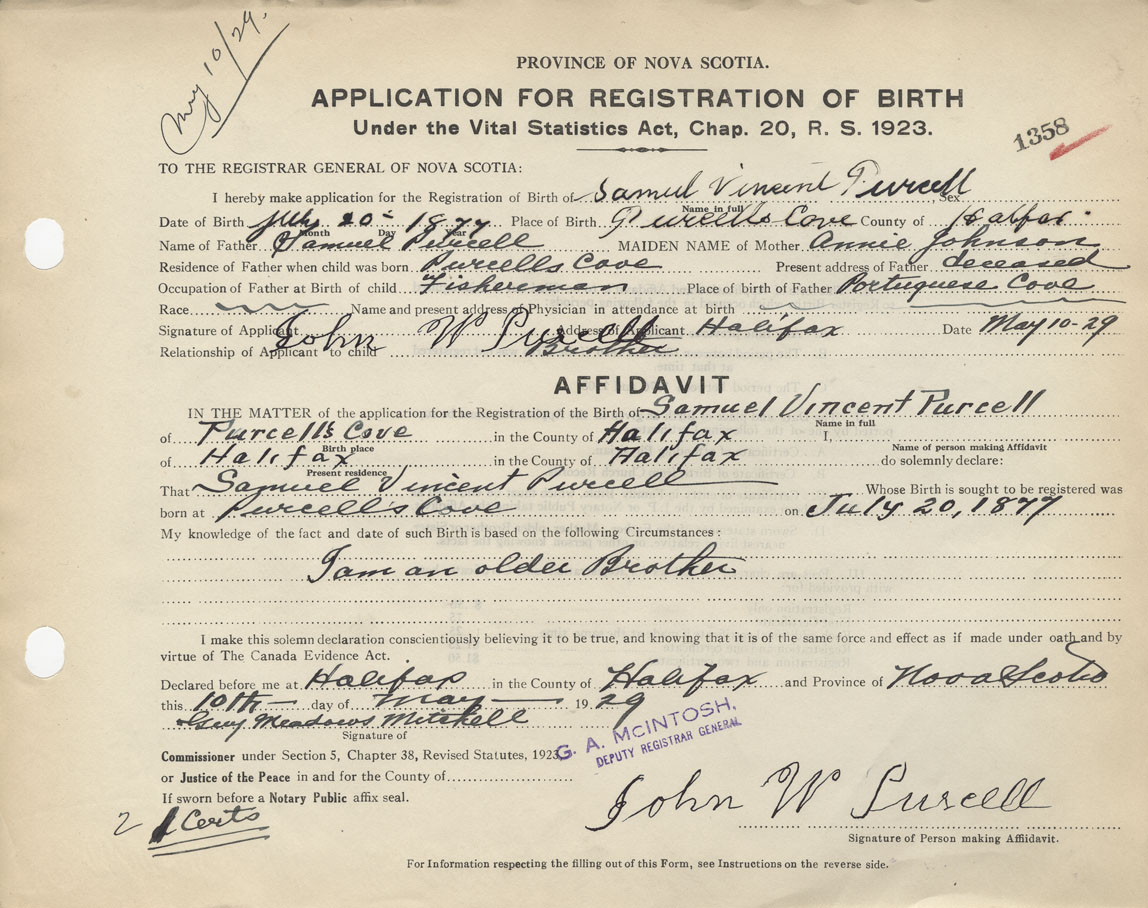 May 10/29.
PROVINCE OF NOVA SCOTIA.
APPLICATION FOR REGISTRATION OF BIRTH
Under the Vital Statistics Act, Chap. 20, R. S. 1923.
1358
TO THE REGISTRAR GENERAL OF NOVA SCOTIA:
I hereby make application for the Registration of Birth of Samuel Vincent Purcell Sex
Name in full
Date of Birth July 20 1877 Place of Birth Purcell's Cove County of Halifax
Month Day Year
Name of Father Samuel Purcell MAIDEN NAME of Mother Annie Johnson
Residence of Father when child was born Purcells Cove Present address of Father deceased
Occupation of Father at Birth of child Fisherman Place of birth of Father Portuguese Cove
Race Name and present address of Physician in attendance at birth
Signature of Applicant John W Purcell Address of Applicant Halifax Date May 10-29
Relationship of Applicant to child Brother
AFFIDAVIT
IN THE MATTER of the application for the Registration of the Birth of Samuel Vincent Purcell
Name in full
of Purcell's Cove in the County of Halifax I,
Birth place Name of person making Affidavit
of Halifax in the County of Halifax do solemnly declare:
Present residence
That Samuel Vincent Purcell Whose Birth is sought to be registered was
born at Purcell's Cove on July 20, 1877
My knowledge of the fact and date of such Birth is based on the following Circumstances:
I am an older Brother
I make this solemn declaration conscientiously believing it to be true, and knowing that it is of the same force and effect as if made under oath and by
virtue of The Canada Evidence Act.
Declared before me at Halifax in the County of Halifax and Province of Nova Scotia
this 10th day of May 19 29
Guy Meadows Mitchell
Signature of
G. A. McINTOSH,
DEPUTY REGISTRAR GENERAL
Commissioner under Section 5, Chapter 38, Revised Statutes, 1923
or Justice of the Peace in and for the County of
If sworn before a Notary Public affix seal.
2 Certs
John W Purcell
Signature of Person making Affiidavit.
For Information respecting the filling out of this Form, see Instructions on the reverse side.